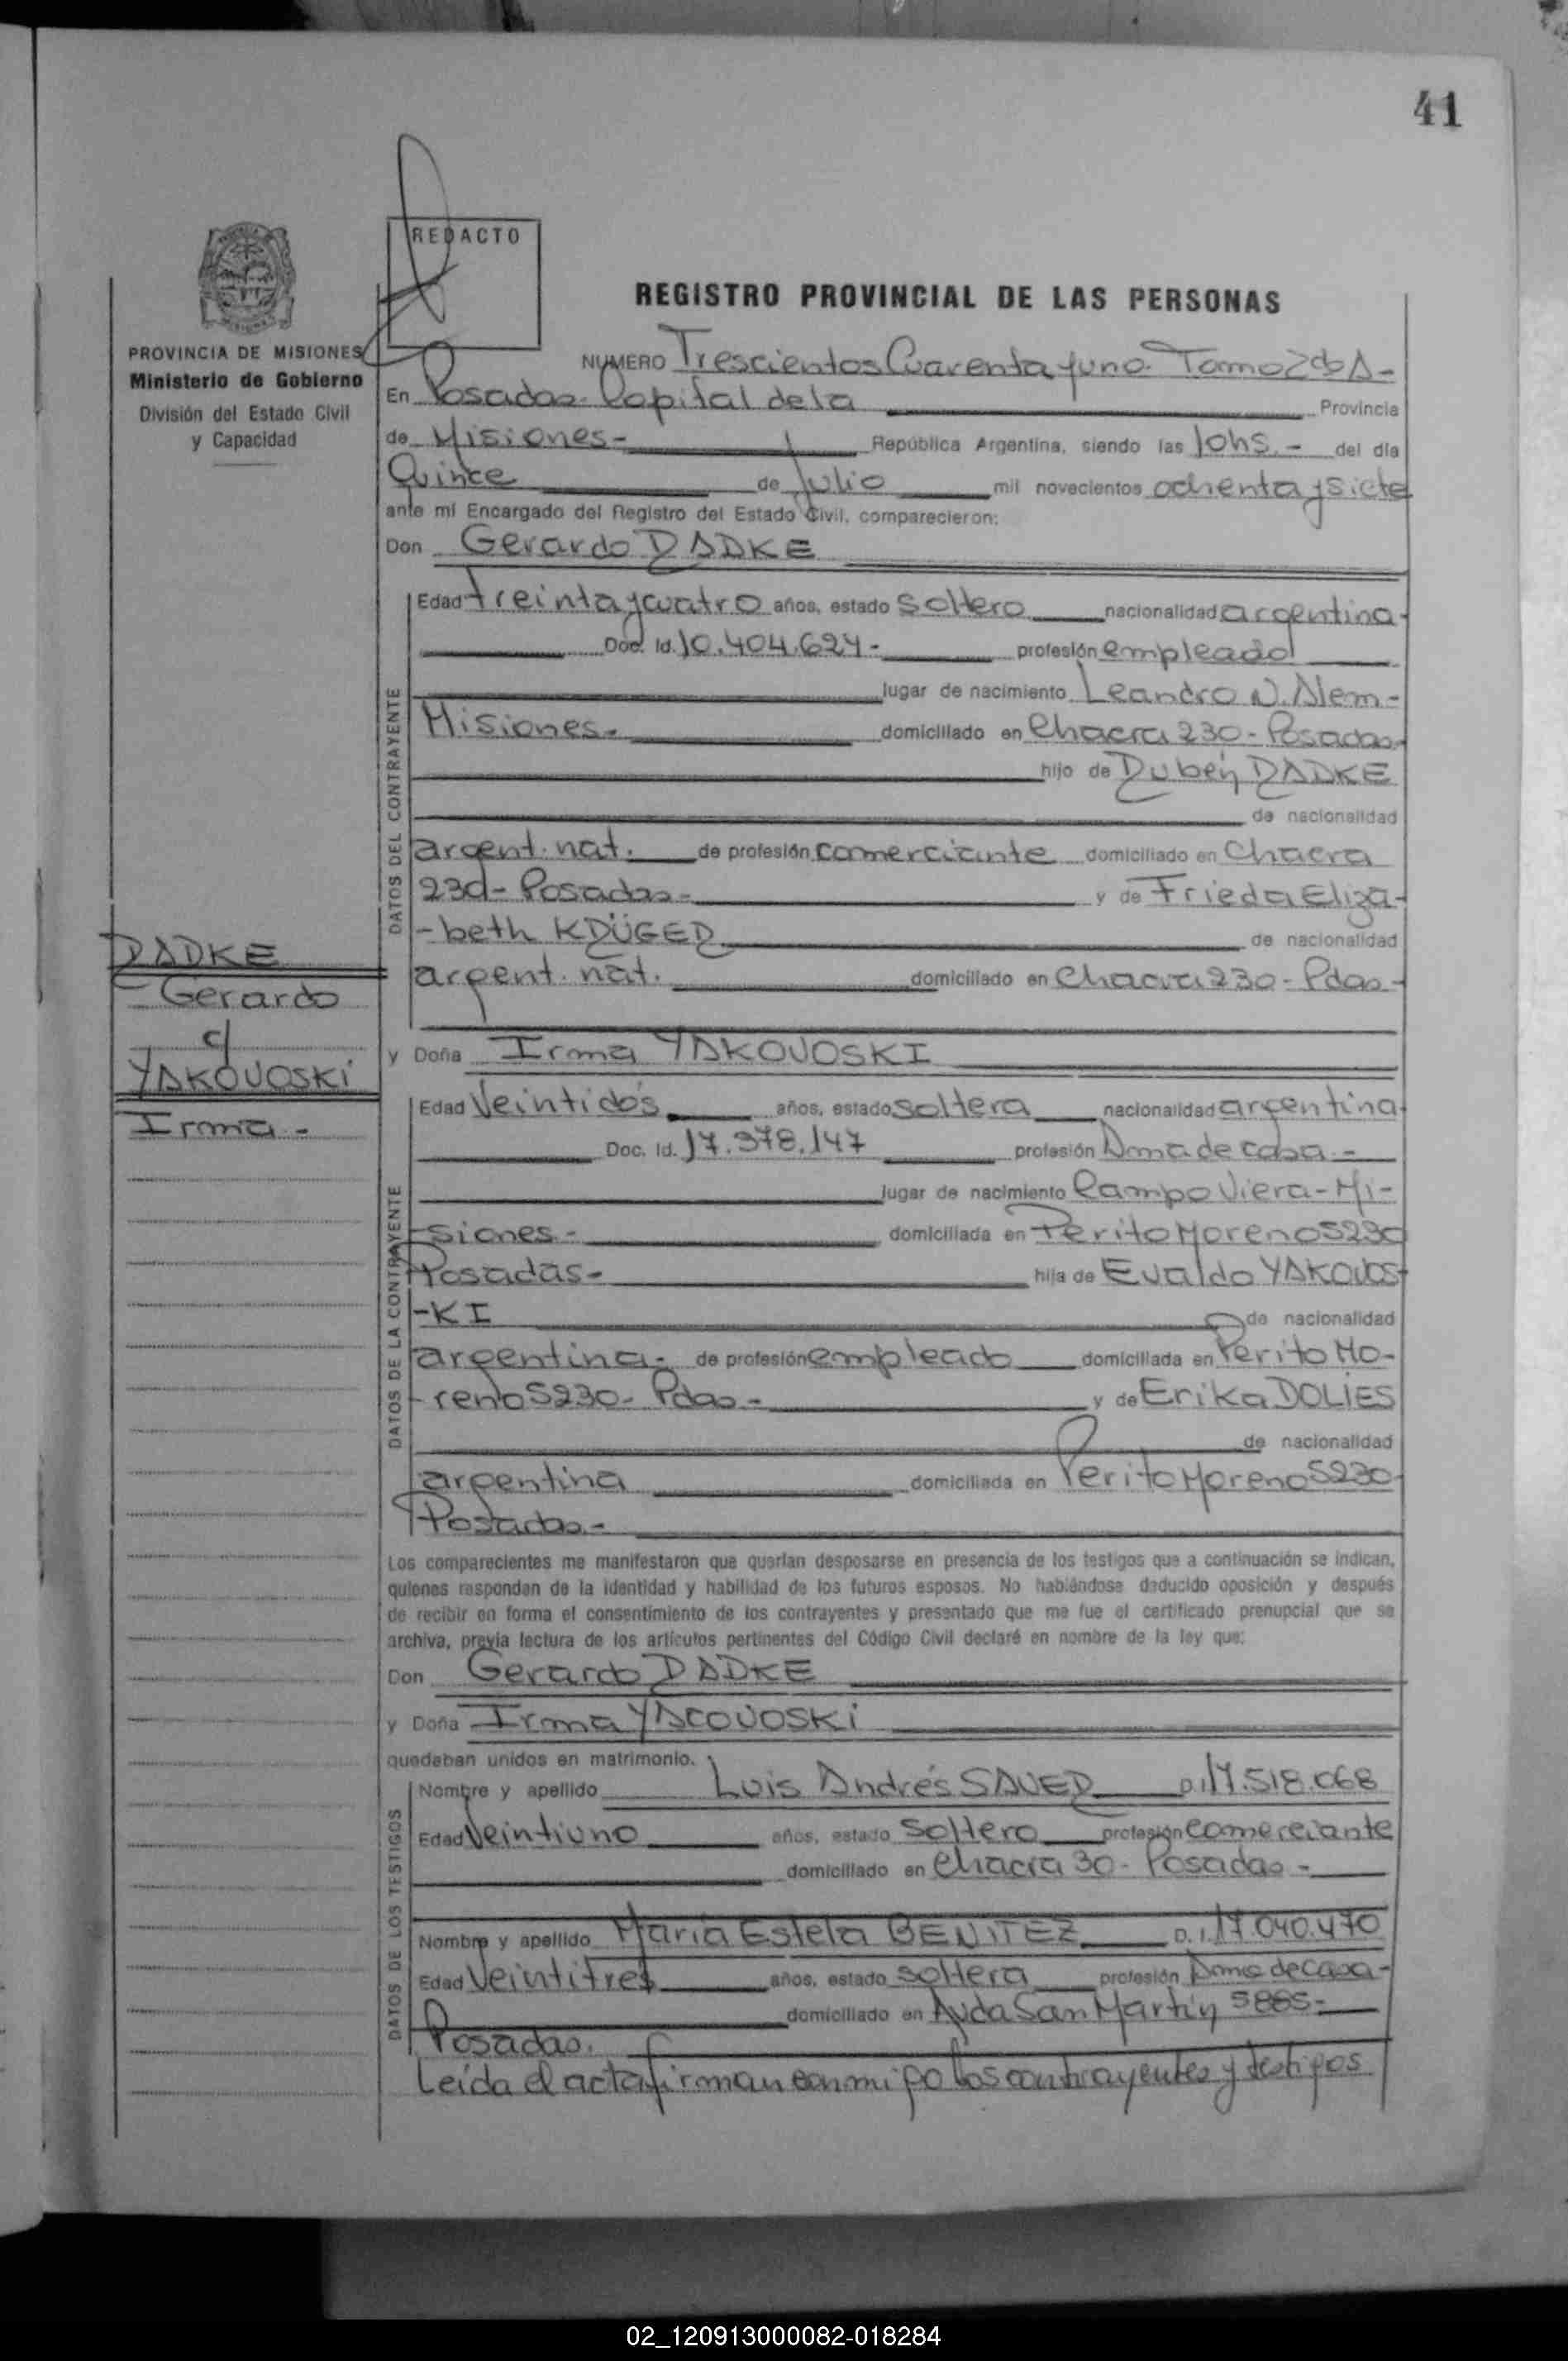 41
REDACTO
REGISTRO PROVINCIAL DE LAS PERSONAS
PROVINCIA DE MISIONES
Ministerio de Gobierno
División del Estado Civil
y Capacidad
NUMERO Trescientos Cuarenta y uno. Tomo 2do A-
En Posadas. Capital de la Provincia
de Misiones- República Argentina, siendo las 10hs.- del día
Quince de Julio mil novecientos ochenta y siete
ante mí Encargado del Registro del Estado Civil, comparecieron:
Don Gerardo RADKE
DATOS DEL CONTRAYENTE
Edad treinta y cuatro años, estado soltero nacionalidad argentina-
Doc. Id. 10.404.624- profesión empleado
lugar de nacimiento Leandro N. Alem-
Misiones- domiciliado en Chacra 230- Posadas-
hijo de Rubén RADKE
de nacionalidad
argent. nat. de profesión comerciante domiciliado en Chacra
230- Posadas- y de Frieda Eliza-
-beth KRÜGER de nacionalidad
argent. nat. domiciliado en Chacra 230- Pdas-
RADKE
Gerardo
c/
YAKOVOSKI
Irma-
y Doña Irma YAKOVOSKI
DATOS DE LA CONTRAYENTE
Edad Veintidós años, estado soltera nacionalidad argentina-
Doc. Id. 17.378.147 profesión Ama de casa.-
lugar de nacimiento Campo Viera-Mi-
siones.- domiciliada en Perito Moreno 5230
Posadas- hija de Evaldo YAKOVOS-
-KI de nacionalidad
argentina- de profesión empleado domiciliada en Perito Mo-
-reno 5230- Pdas- y de Erika DOLIES
de nacionalidad
argentina domiciliada en Perito Moreno 5230-
Posadas-
Los comparecientes me manifestaron que querían desposarse en presencia de los testigos que a continuación se indican,
quienes responden de la identidad y habilidad de los futuros esposos. No habiéndose deducido oposición y después
de recibir en forma el consentimiento de los contrayentes y presentado que me fue el certificado prenupcial que se
archiva, previa lectura de los artículos pertinentes del Código Civil declaré en nombre de la ley que:
Don Gerardo RADKE
y Doña Irma YACOVOSKI
quedaban unidos en matrimonio.
DATOS DE LOS TESTIGOS
Nombre y apellido Luis Andrés SAUER D.I 17.518.068
Edad Veintiuno años, estado soltero profesión comerciante
domiciliado en Chacra 30- Posadas-
Nombre y apellido María Estela BENITEZ D.I. 17.040.470
Edad Veintitres años, estado soltera profesión Ama de casa-
domiciliado en Avda San Martín 5885-
Posadas.
Leída el acta firman conmigo los contrayentes y testigos
02_120913000082-018284